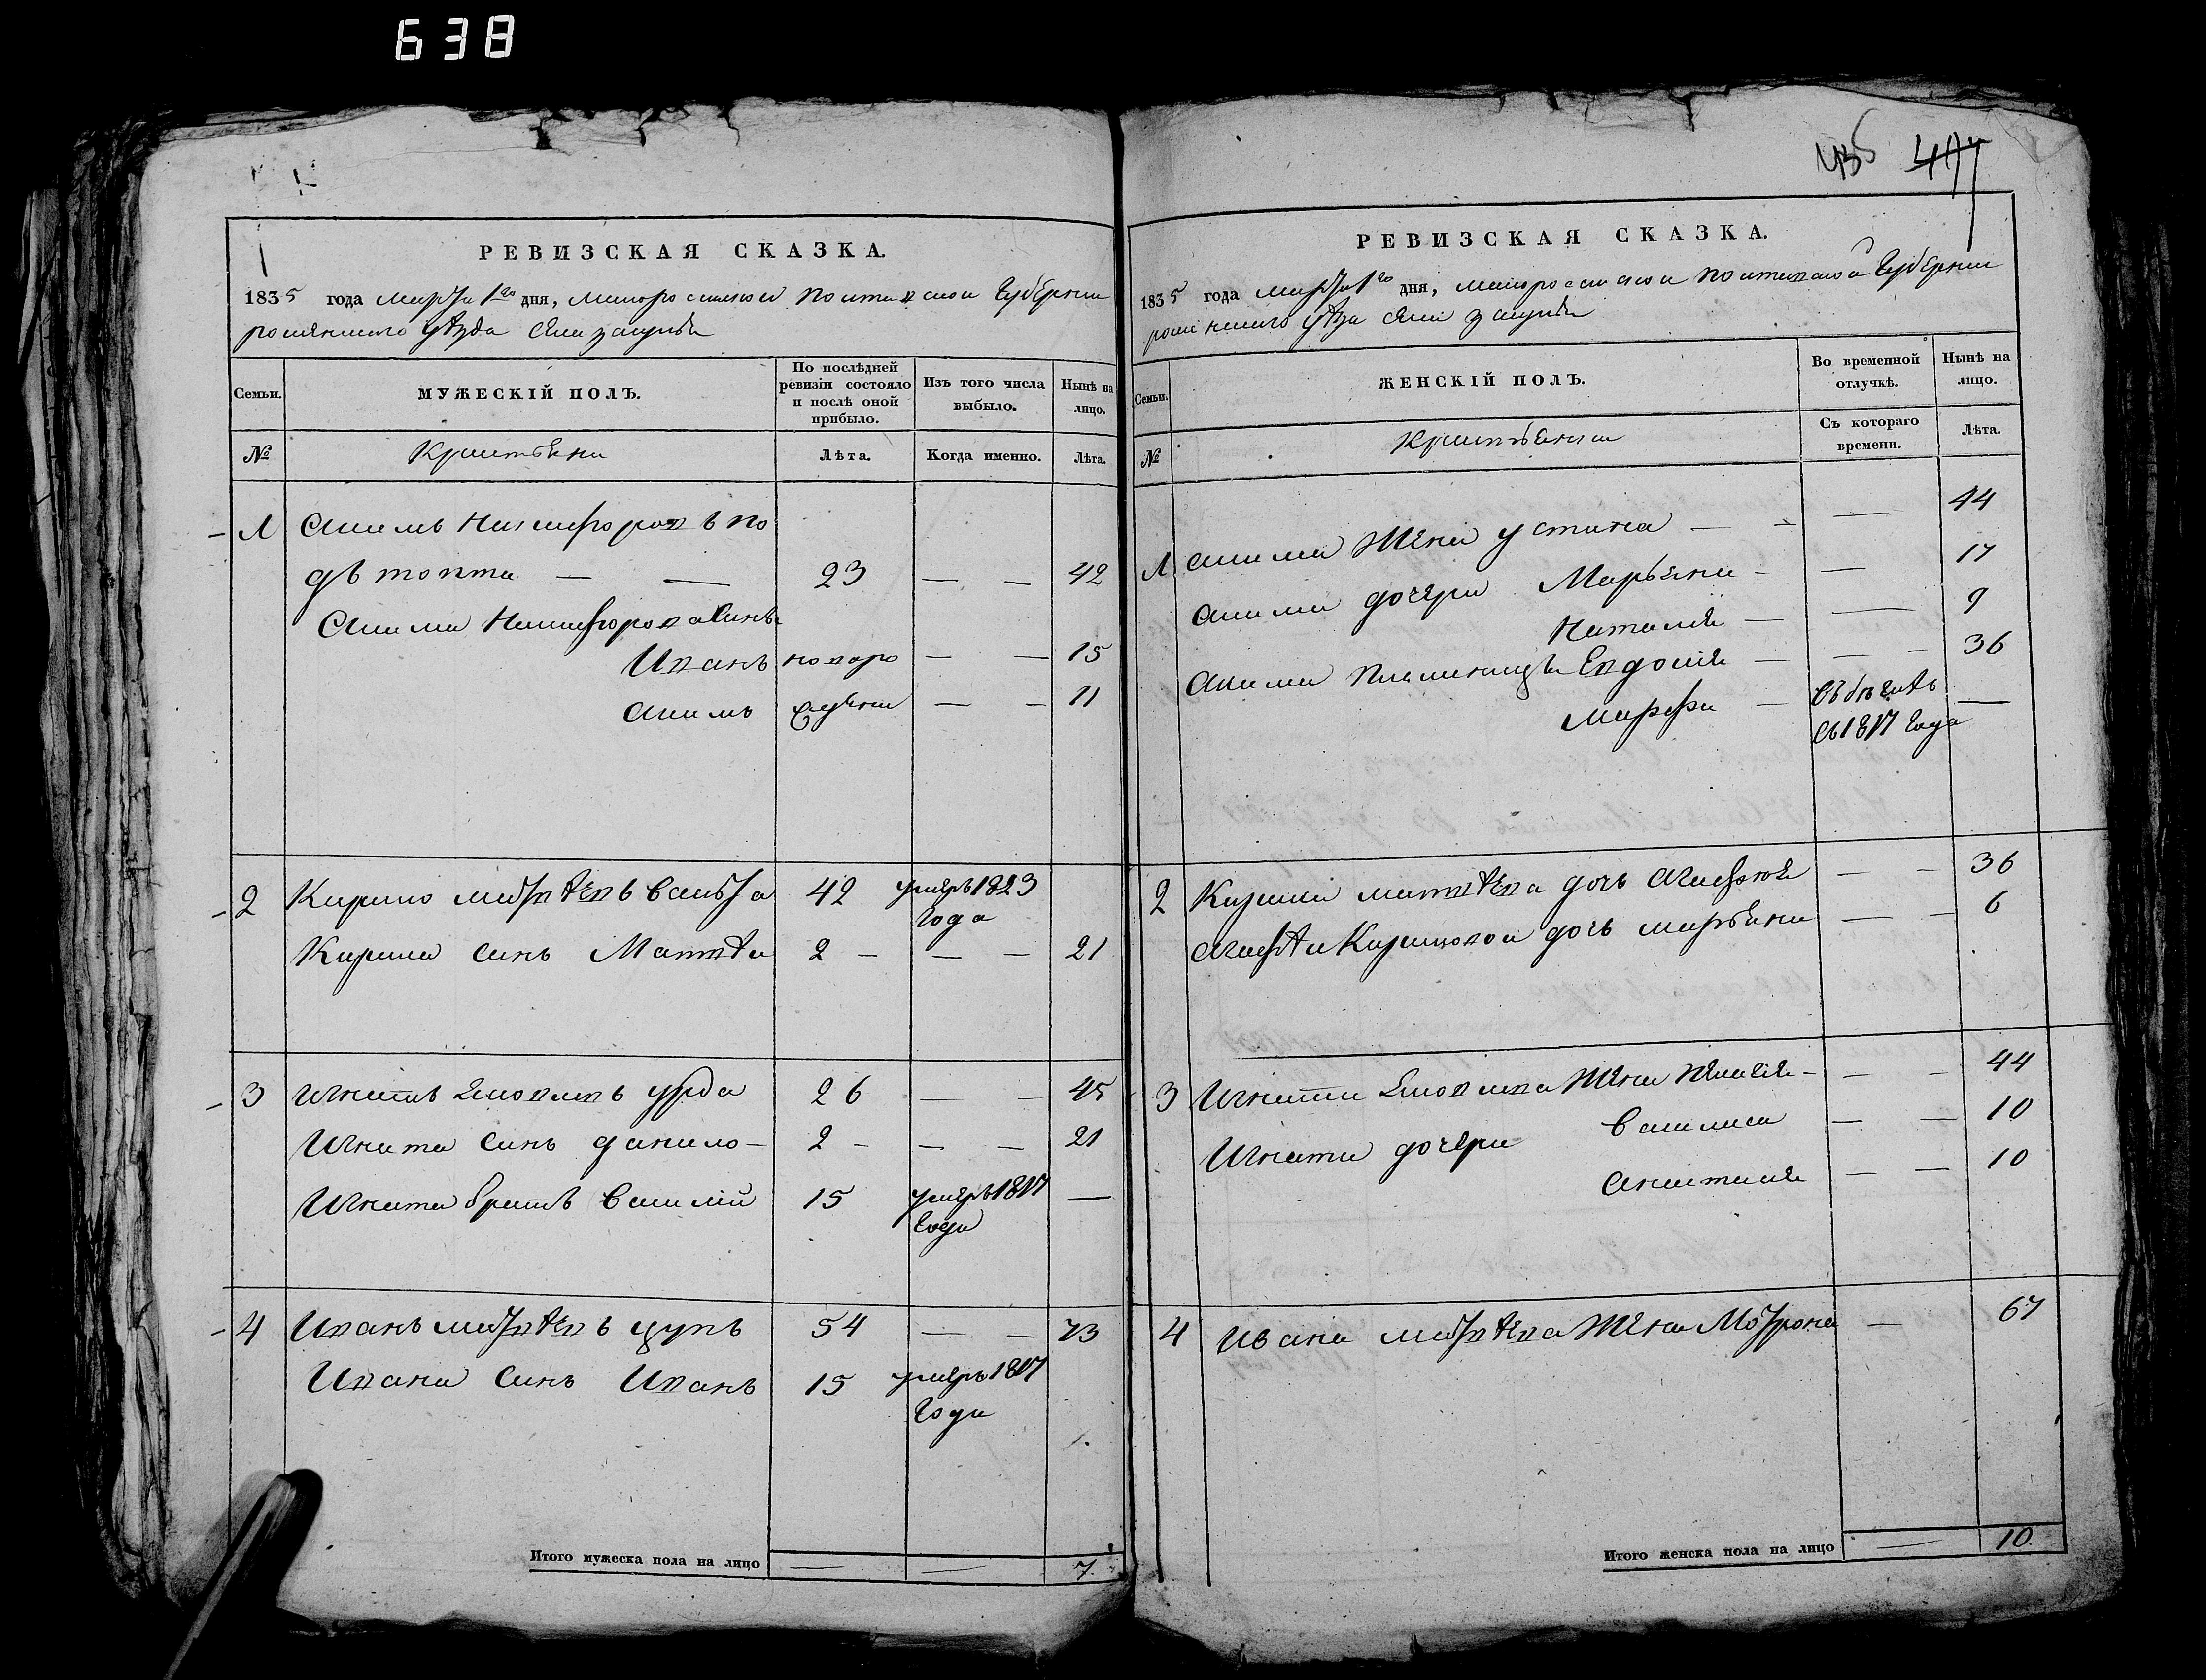 638
435 497
РЕВИЗСКАЯ СКАЗКА.
1835 года марта 1го дня, малоросийской полтавской губернии
роменскаго уезда села
Семьи.
МУЖЕСКІЙ ПОЛЪ.
По послѣдней ревизіи состояло и послѣ оной прибыло.
Изъ того числа выбыло.
Нынѣ на лицо.
№
Крестьяни
Лѣта.
Когда именно.
Лѣта.
1 Акимъ Никифоровъ по
дътопта — — 23 — — 42
Акима Никифорова Синъ
Иванъ новоро — — 15
Акимъ ждени — — 11
2 Кирило матвѣевъ 42 умеръ 1823
года
Кирила синъ Матвѣи 2 — — — 21
3 Игнатъ урда 26 — — 45
Игната синъ данило — 2 — — — 21
Игната братъ Василій 15 умеръ 1817 —
года
4 Иванъ матвѣевъ цупъ 54 — — 73
Ивана синъ Иванъ 15 умеръ 1817
года
Итого мужеска пола на лицо — — 7.
РЕВИЗСКАЯ СКАЗКА.
1835 года марта 1го дня, малоросийской полтавской губернии
роменскаго уезда села
Семьи.
ЖЕНСКІЙ ПОЛЪ.
Во временной отлучкѣ.
Нынѣ на лицо.
№
Крестьянки
Съ котораго времени.
Лѣта.
1 Акима Жена устина — — — 44
Акима дочери Марьяна — — 17
Наталия — — 9
Акима племеницы Евдокия — — — 36
Марфа — —
съ 1817 года
2 Кирила матвѣева дочь — — 36
Кириловой дочь марьяна — — 6
3 Игната Жена — — — 44
Игната дочери Василиса — — 10
Анастасия — — 10
4 Ивана матвѣева Жена Мотрона — 67
Итого женска пола на лицо — 10.